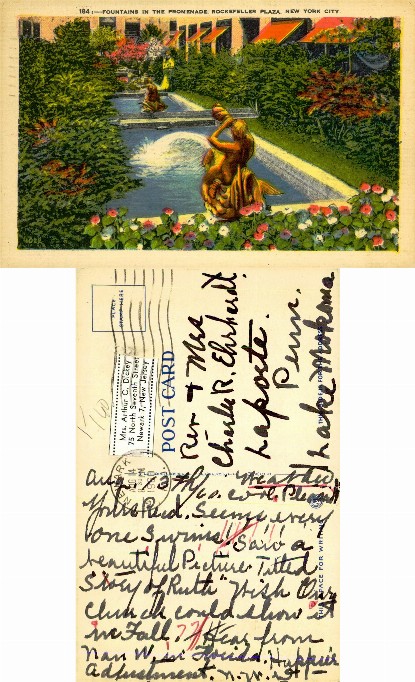 184:—FOUNTAINS IN THE PROMENADE, ROCKEFELLER PLAZA, NEW YORK CITY.
PLACE
STAMP HERE
Mrs. Arthur C. Dickey
75 North Seventh Street
Newark 7, New Jersey
POST-CARD
Rev. & Mrs
Charles R. Ehrhardt
Laporte.
Penn.
Lake Mokoma
Aug. 13th/60. Weather
cool, Pleasant
Yours Recd. Seems every
one swims!!!! Saw a
beautiful Picture Titled
Story of Ruth" Wish Our
Church could show it
in Fall. Hear from
Nan W. in Florida. Happier
Adjustment.